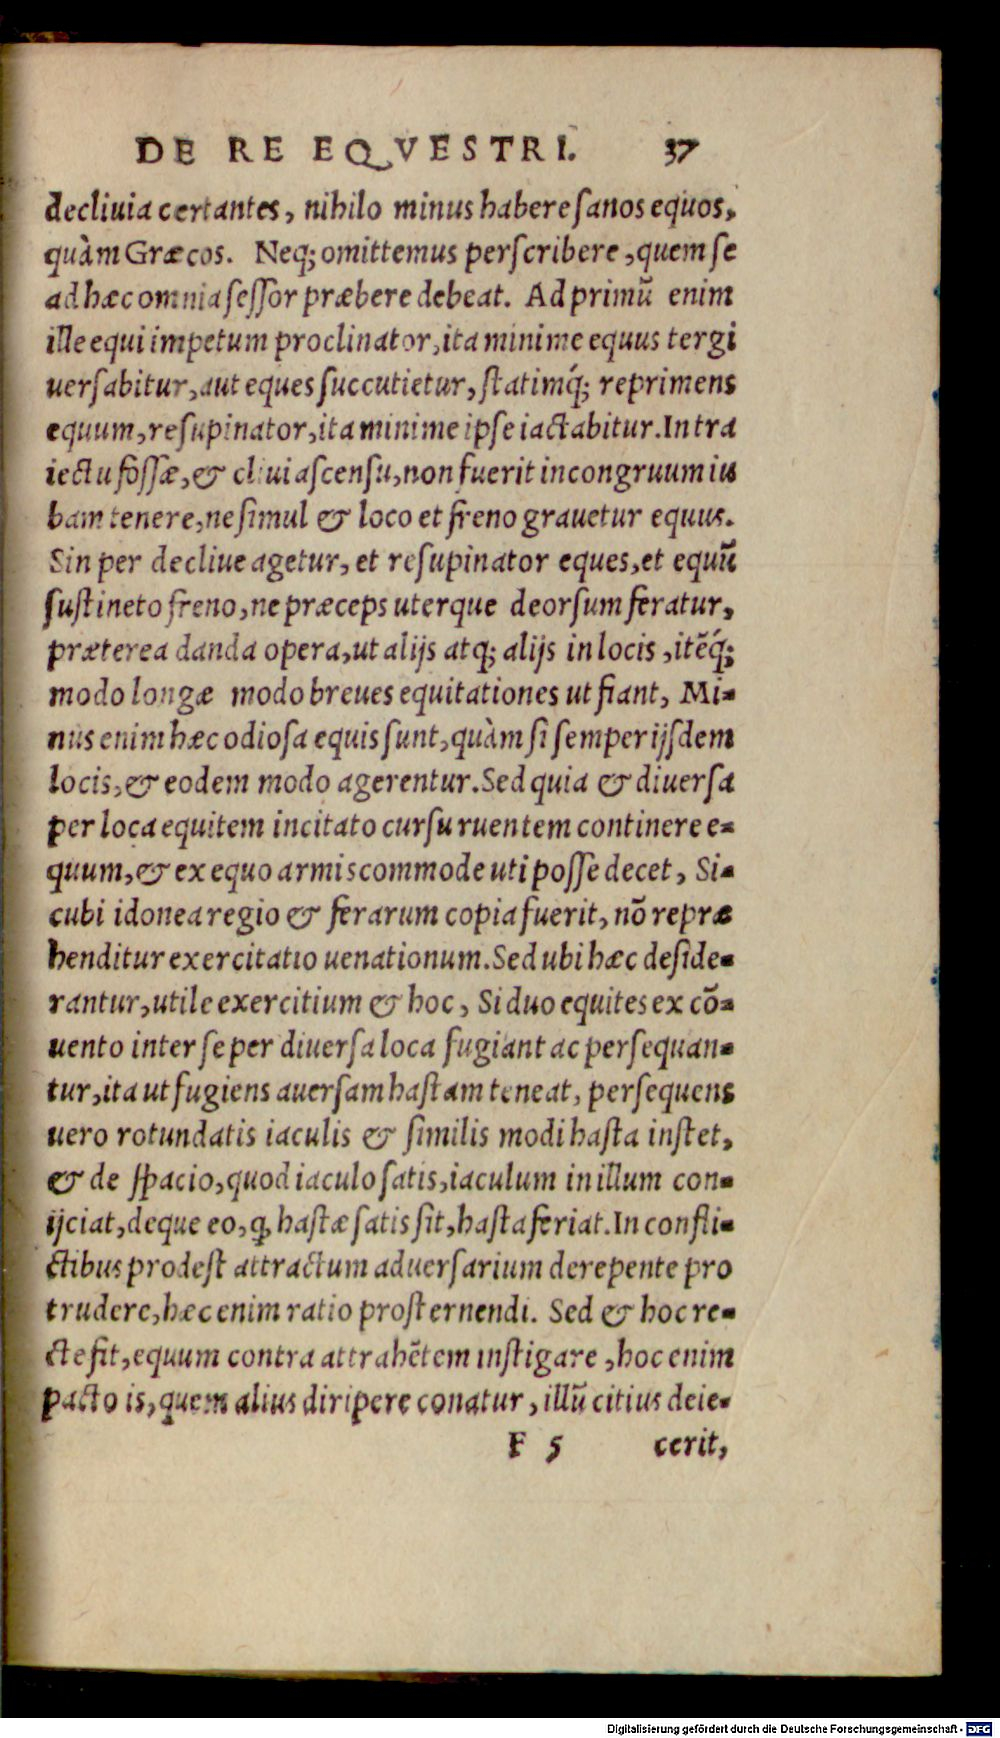 DE RE EQVESTRI. 37
decliuia certantes, nihilo minus habere sanos equos,
quàm Græcos. Neq; omittemus perscribere, quem se
ad hæc omnia sessor præbere debeat. Ad primũ enim
ille equi impetum proclinator, ita minime equus tergi
uersabitur, aut eques succutietur, statimq́; reprimens
equum, resupinator, ita minime ipse iactabitur. In tra
iectu fossæ, & cliui ascensu, non fuerit incongruum iu
bam tenere, ne simul & loco et freno grauetur equus.
Sin per decliue agetur, et resupinator eques, et equũ
sustineto freno, ne præceps uterque deorsum feratur,
præterea danda opera, ut alijs atq; alijs in locis, itẽq́;
modo longæ modo breues equitationes ut fiant, Mi-
nus enim hæc odiosa equis sunt, quàm si semper ijsdem
locis, & eodem modo agerentur. Sed quia & diuersa
per loca equitem incitato cursu ruentem continere e-
quum, & ex equo armis commode uti posse decet, Si-
cubi idonea regio & ferarum copia fuerit, nõ repræ
henditur exercitatio uenationum. Sed ubi hæc deside-
rantur, utile exercitium & hoc, Si duo equites ex cõ-
uento inter se per diuersa loca fugiant ac persequan-
tur, ita ut fugiens auersam hastam teneat, persequens
uero rotundatis iaculis & similis modi hasta instet,
& de spacio, quod iaculo satis, iaculum in illum con-
ijciat, deque eo, ꝙ hastæ satis sit, hasta feriat. In confli-
ctibus prodest attractum aduersarium derepente pro
trudere, hæc enim ratio prosternendi. Sed & hoc re-
cte fit, equum contra attrahẽtem instigare, hoc enim
pacto is, quem alius diripere conatur, illũ citius deie-
F 5 cerit,
Digitalisierung gefördert durch die Deutsche Forschungsgemeinschaft - DFG